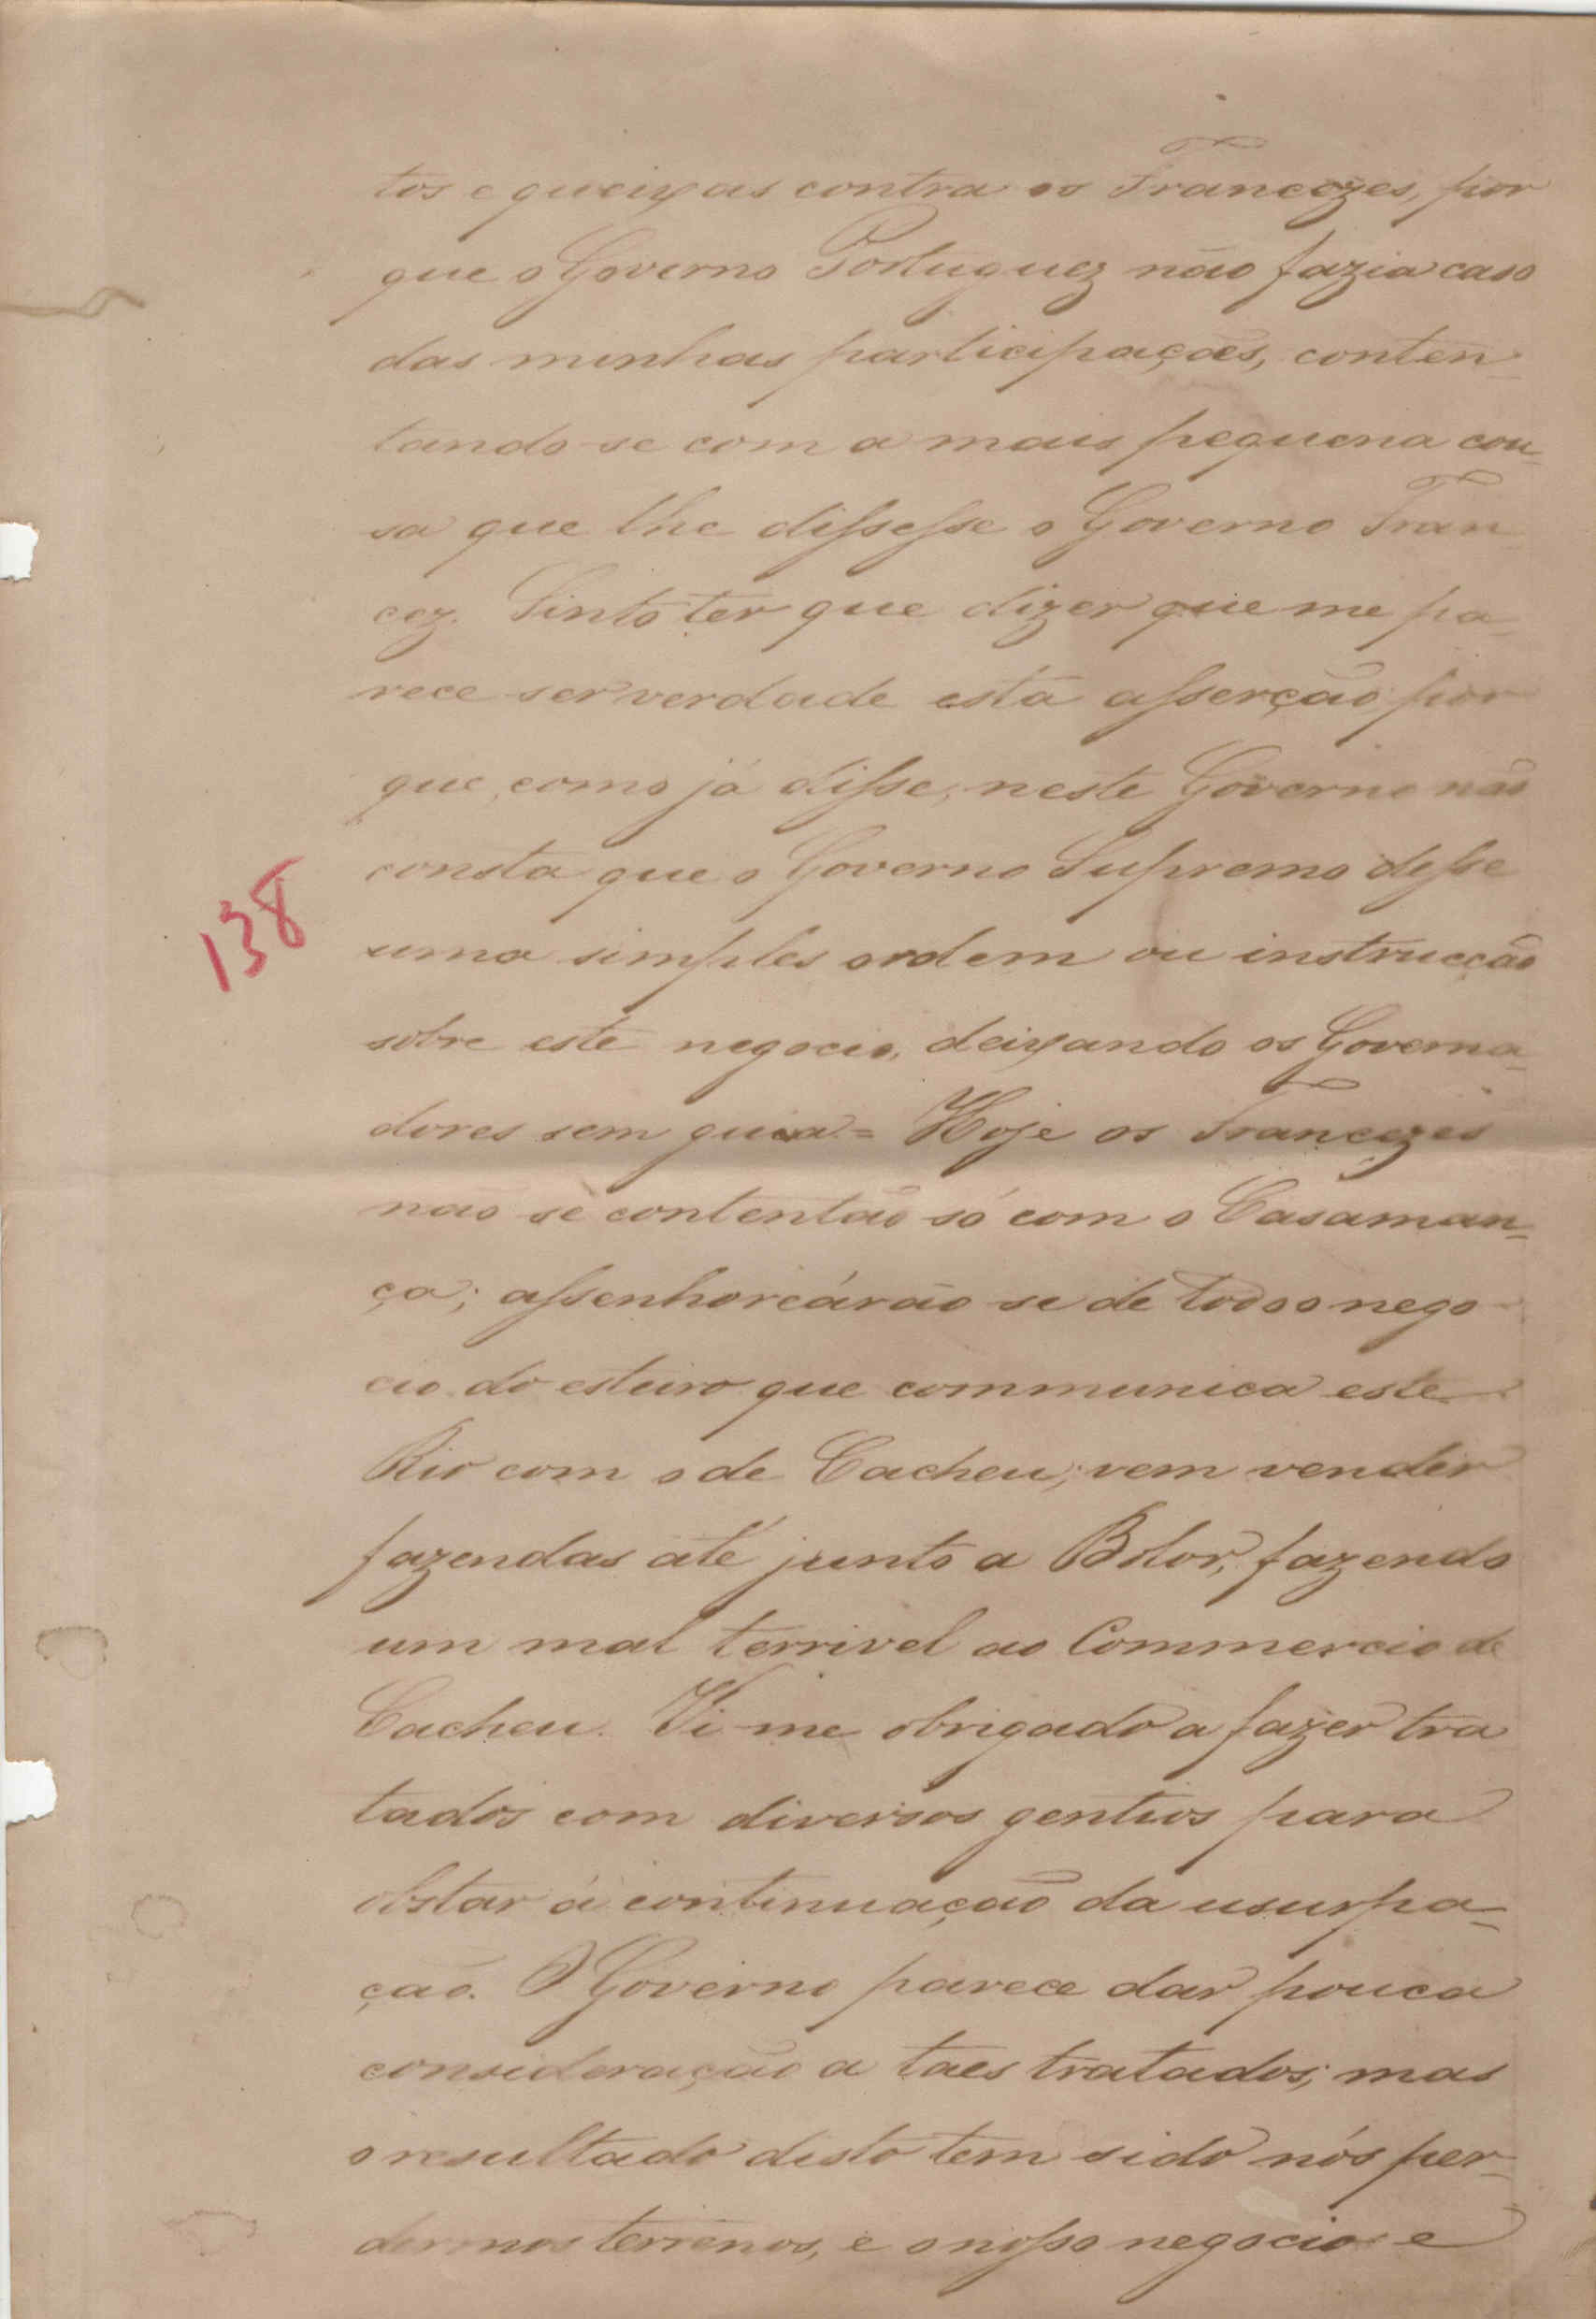 tos e queixas contra os Francezes, por
que o Governo Portuguez não fazia caso
das minhas participações, conten-
tando-se com a mais pequena cou-
sa que lhe dissesse o Governo Fran
cez. Sinto ter que dizer que me pa-
rece ser verdade esta asserção por
que, como já disse, neste Governo não
consta que o Governo Supremo desse
138
uma simples ordem ou instrucção
sobre este negocio, deixando os Governa-
dores sem guia = Hoje os Francezes
não se contentão só com o Casaman-
ça; assenhoreárão-se de todo o nego-
cio do esteiro que communica este
Rio com o de Cacheu; vem vender
fazendas até junto a Bolor, fazendo
um mal terrivel ao Commercio de
Cacheu. Vi-me obrigado a fazer tra
tados com diversos gentios para
obstar á continuação da usurpa-
ção. O Governo parece dar pouca
consideração a taes tratados; mas
o resultado disto tem sido nós per-
dermos terrenos, e o nosso negocio e